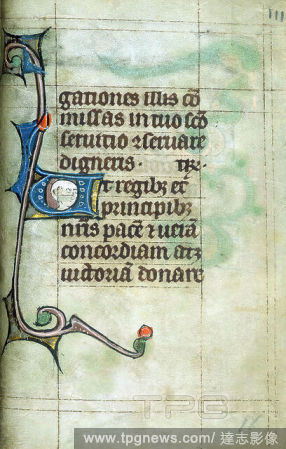 III
gationes illis cõ
missas in tuo scõ
seruitio ⁊seruare
digneris.
Ut regibꝫ et
principibꝫ
nr̃is pacẽ ⁊ uerã
concordiam atꝫ
uictoriã donare
TPG
www.tpgnews.com/ 達志影像